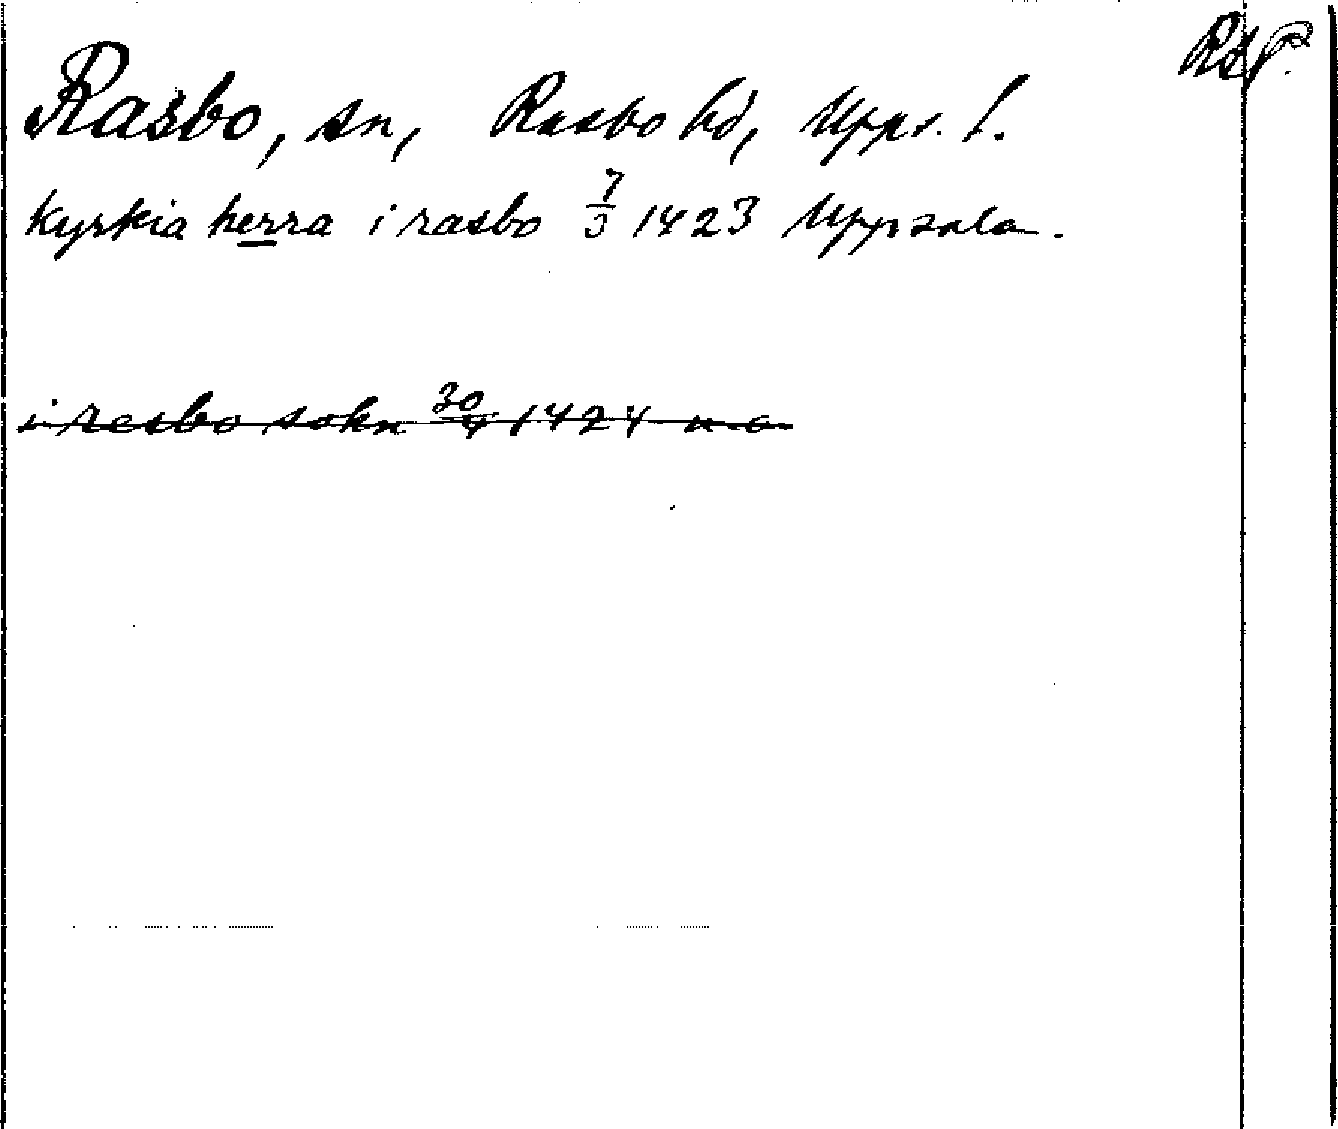 Rasbo, sn, Rasbo hd, Upps. l.
kyrkia herra i rasbo 7/3 1423 Uppsala.
i resbo sokn 30/4 1424